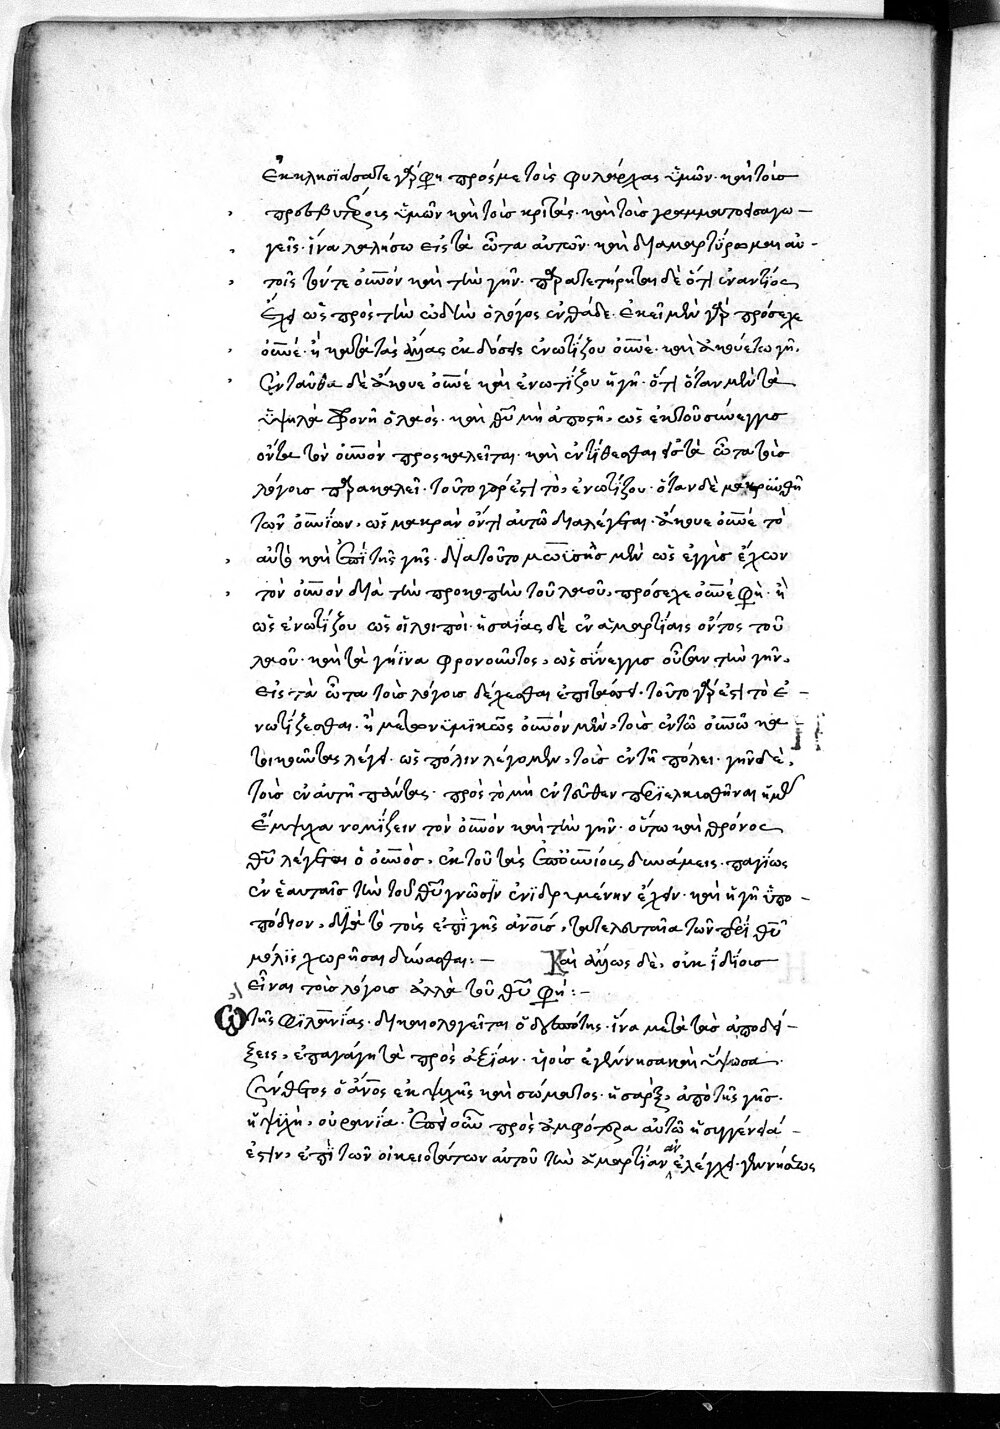 Ἐκκλησιάσατε γάρ φη πρός με τοὺς φυλάρχας ὑμῶν· καὶ τοὺς
πρεσβυτέρους ὑμῶν καὶ τοὺς κριτάς· καὶ τοὺς γραμματοεισαγω–
γεῖς· ἵνα λαλήσω εἰς τὰ ὦτα αὐτῶν· καὶ διαμαρτύρωμαι αὐ–
τοῖς τόν τε οὐνον καὶ τὴν γῆν· παρατετήρηται δὲ ὅτι ἐναντίος
ἔχει ὡς πρὸς τὴν ὠδὴν ὁ λόγος ἐνθάδε· ἐκεῖ μὲν γὰρ πρόσεχε
οὐνέ· ἢ κατὰ τὰς ἄλλας ἐκδόσεις ἐνωτίζου οὐνέ· καὶ ἀκουέτω γῆ.
ἐνταῦθα δὲ ἄκουε οὐνέ καὶ ἐνωτίζου ἡ γῆ· ὅτι ὅταν μὲν τὰ
ὑψηλὰ φρονῆ ὁ λαός· καὶ θῦ μὴ ἀποστῆ, ὡς ἐκ τοῦ σύνεγγυς
ὄντα τὸν οὐνον προσκαλεῖται· καὶ ἐντίθεσθαι εἰς τὰ ὦτα τοὺς
λόγους παρακαλεῖ· τοῦτο γάρ ἐστι τὸ, ἐνωτίζου· ὅταν δὲ μακρυνθῆ
τῶν οὐνίων, ὡς μακρὰν ὄντι αὐτῶ διαλέγεται· ἄκουε οὐνέ τὸ
αὐτὸ καὶ ἐπὶ τῆς γῆς· διὰ τοῦτο μωϋσῆς μὲν ὡς ἐγγὺς ἔχων
τὸν οὐνον διὰ τὴν προκοπὴν τοῦ λαοῦ, πρόσεχε οὐνέ φη· ἢ
ὡς ἐνωτίζου ὡς οἱ λοιποί· ἡσαΐας δὲ ἐν ἁμαρτίαις ὄντος τοῦ
λαοῦ· καὶ τὰ γήϊνα φρονοῦντος, ὡς σύνεγγυς οὖσαν τὴν γῆν,
εἰς τὰ ὦτα τοὺς λόγους δέχεσθαι ἐπιτάττει· τοῦτο γάρ ἐστι τὸ ἐ–
νωτίζεσθαι· ἢ μετωνυμικῶς οὐνον μὲν, τοὺς ἐν τῶ οὐνῶ κα
τοικοῦντας λέγει· ὡς πόλιν λέγομεν, τοὺς ἐν τῆ πόλει· γῆν δὲ,
τοὺς ἐν αὐτῆ πάντας· πρὸς τὸ μὴ ἐντεῦθεν
ἔμψυχα νομίζειν τὸν οὐνον καὶ τὴν γῆν· οὕτω καὶ θρόνος
θῦ λέγεται ὁ οὐνος, ἐκ τοῦ τὰς ἐπουνίους δυνάμεις· παγίως
ἐν ἑαυταῖς τὴν τοῦ θῦ γνῶσιν ἐνϊδρυμένην ἔχειν· καὶ ἡ γῆ ὑπο–
πόδιον, διὰ τὸ τοὺς ἐπὶ γῆς ἀνους, τὰ τελευταῖα τῶν περὶ θῦ
μόλις χωρῆσαι δύνασθαι:– Καὶ ἄλλως δὲ, οὐκ ἰδίους
εἶναι τοὺς λόγους ἀλλὰ τοῦ θῦ φη:–
Ὢ τῆς φιλανίας· δικαιολογεῖται ὁ δεσπότης· ἵνα μετὰ τὰς ἀποδεί–
ξεις, ἐπαγάγη τὰ πρὸς ἀξίαν· υἱοὺς ἐγέννησα καὶ ὕψωσα.
Σύνθετος ὁ ἄνος ἐκ ψυχῆς καὶ σώματος· ἡ σὰρξ, ἀπὸ τῆς γῆς·
ἡ ψυχὴ, οὐρανία· ἐπεὶ οὖν πρὸς ἀμφότερα αὐτῶ ἡ συγγένειά
ἐστιν, ἐπὶ τῶν οἰκειοτάτων αὐτοῦ τὴν ἁμαρτίαν ἐλέγχει· γεννήσεως